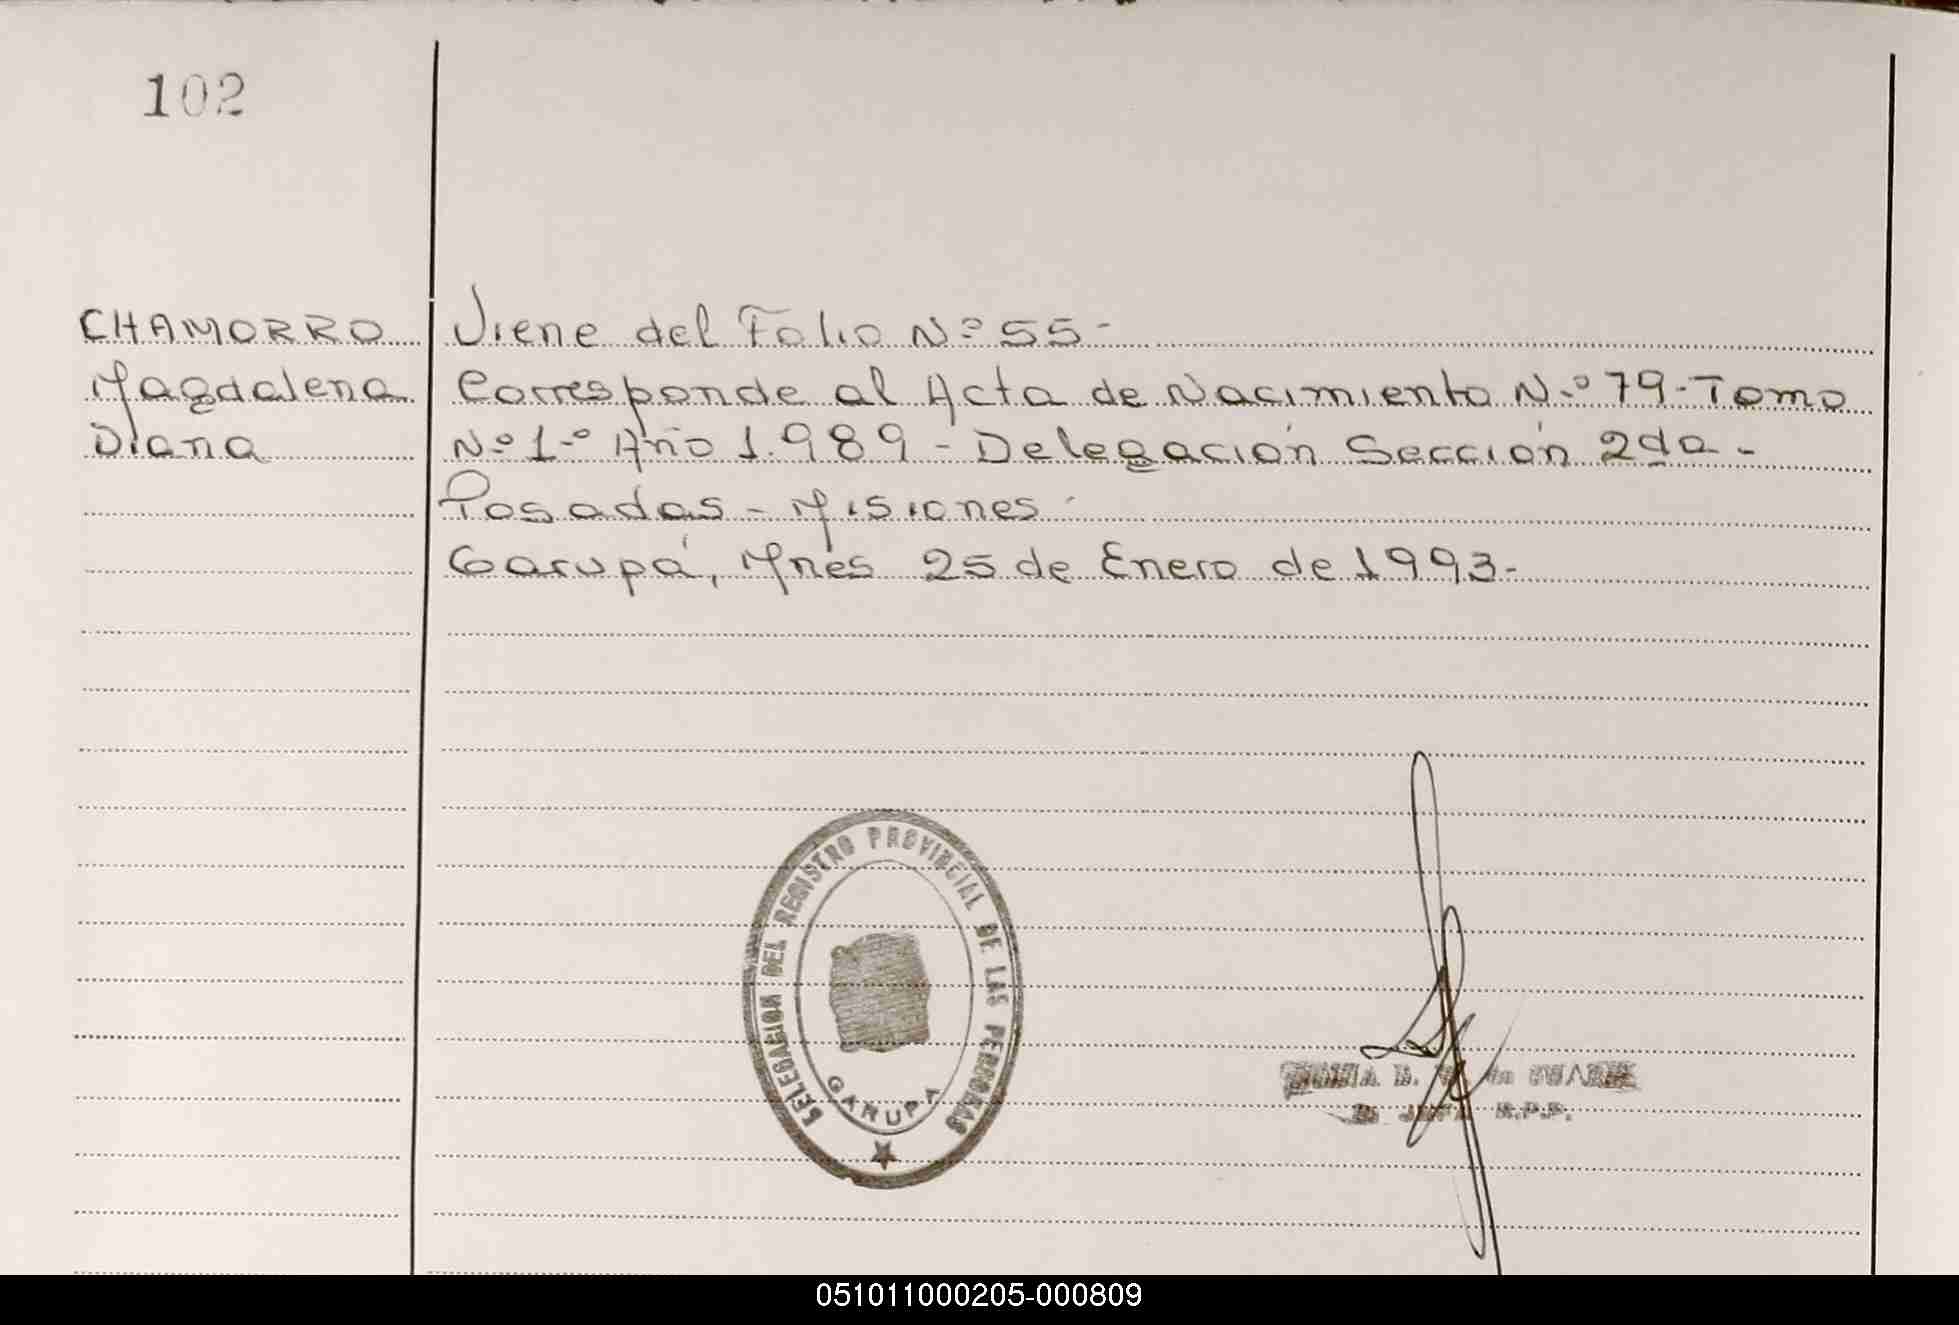 102
CHAMORRO
Magdalena
Diana
Viene del Folio Nº 55-
Corresponde al Acta de Nacimiento N.º 79-Tomo
Nº 1-º Año 1.989 - Delegación Sección 2da -
Posadas - Misiones -
Garupá, Mnes 25 de Enero de 1993-
DELEGACION DEL REGISTRO PROVINCIAL DE LAS PERSONAS
GARUPA
JEFA R.P.P.
051011000205-000809